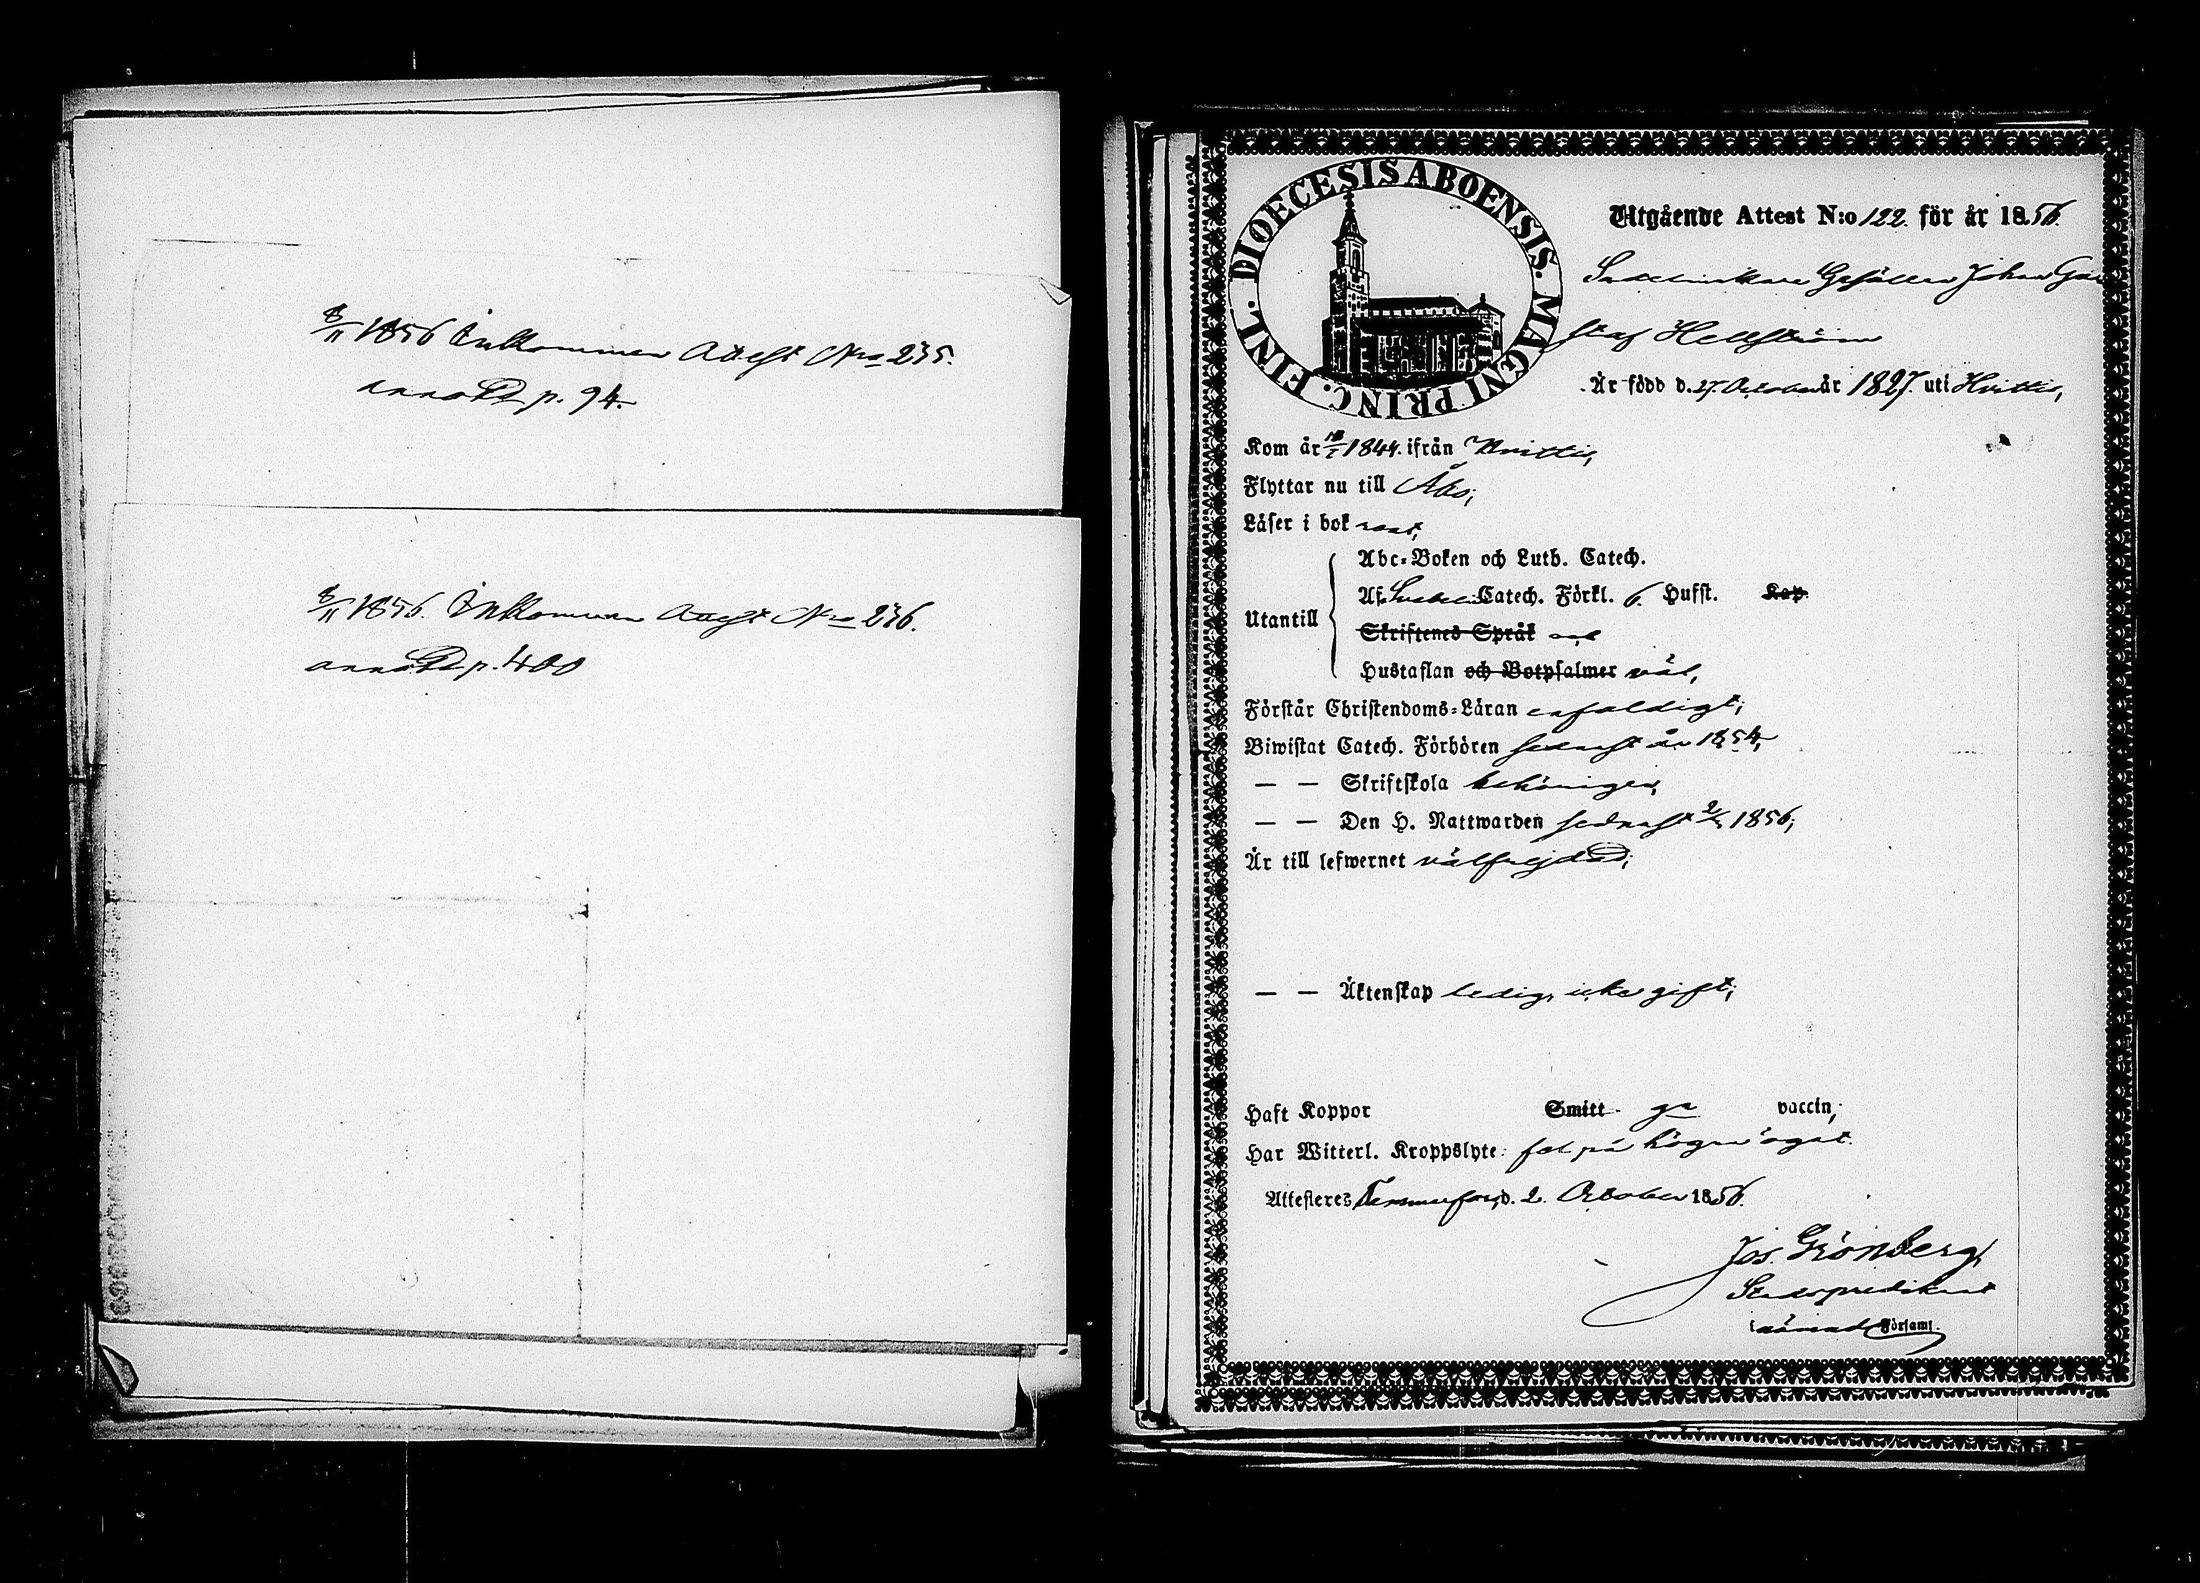 8/11 1856 Inkommen Attest Nro 235.
annoterad p. 94.
8/11 1856. Inkommen Attest Nro 236.
annoterad p. 400
DIOECESIS ABOENSIS. MAGNI PRINC. FINL.
Utgående Attest N:o 122. för år 1856.
Sadelmakare Gesällen Johan Gu
staf Hellström
Är född d. 27. October år 1827. uti Hvittis,
Kom år 1844. ifrån Hvittis,
Flyttar nu till Åbo;
Läser i bok rent,
Abc-Boken och Luth. Catech.
Utantill
Af Svebelii Catech. Förkl. 6. Hufst. Kap.
Skriftenes Språk
Hustaflan och Botpsalmer väl,
Förstår Christendoms-Läran enfaldigt;
Biwistat Catech. Förhören sednast år 1854,
— — Skriftskola behörigen,
— — Den H. Nattwarden sednast 1856;
Är till lefwernet välfrejdad;
— — Äktenskap ledig, icke gift;
Haft Koppor Smitt vaccin,
Har Witterl. Kroppslyte: fel på högra ögat.
Attesteres Tammerfors, d. 2. October 1856.
Jos. Grönberg,
Stadspredikant
i nämnd Församl.